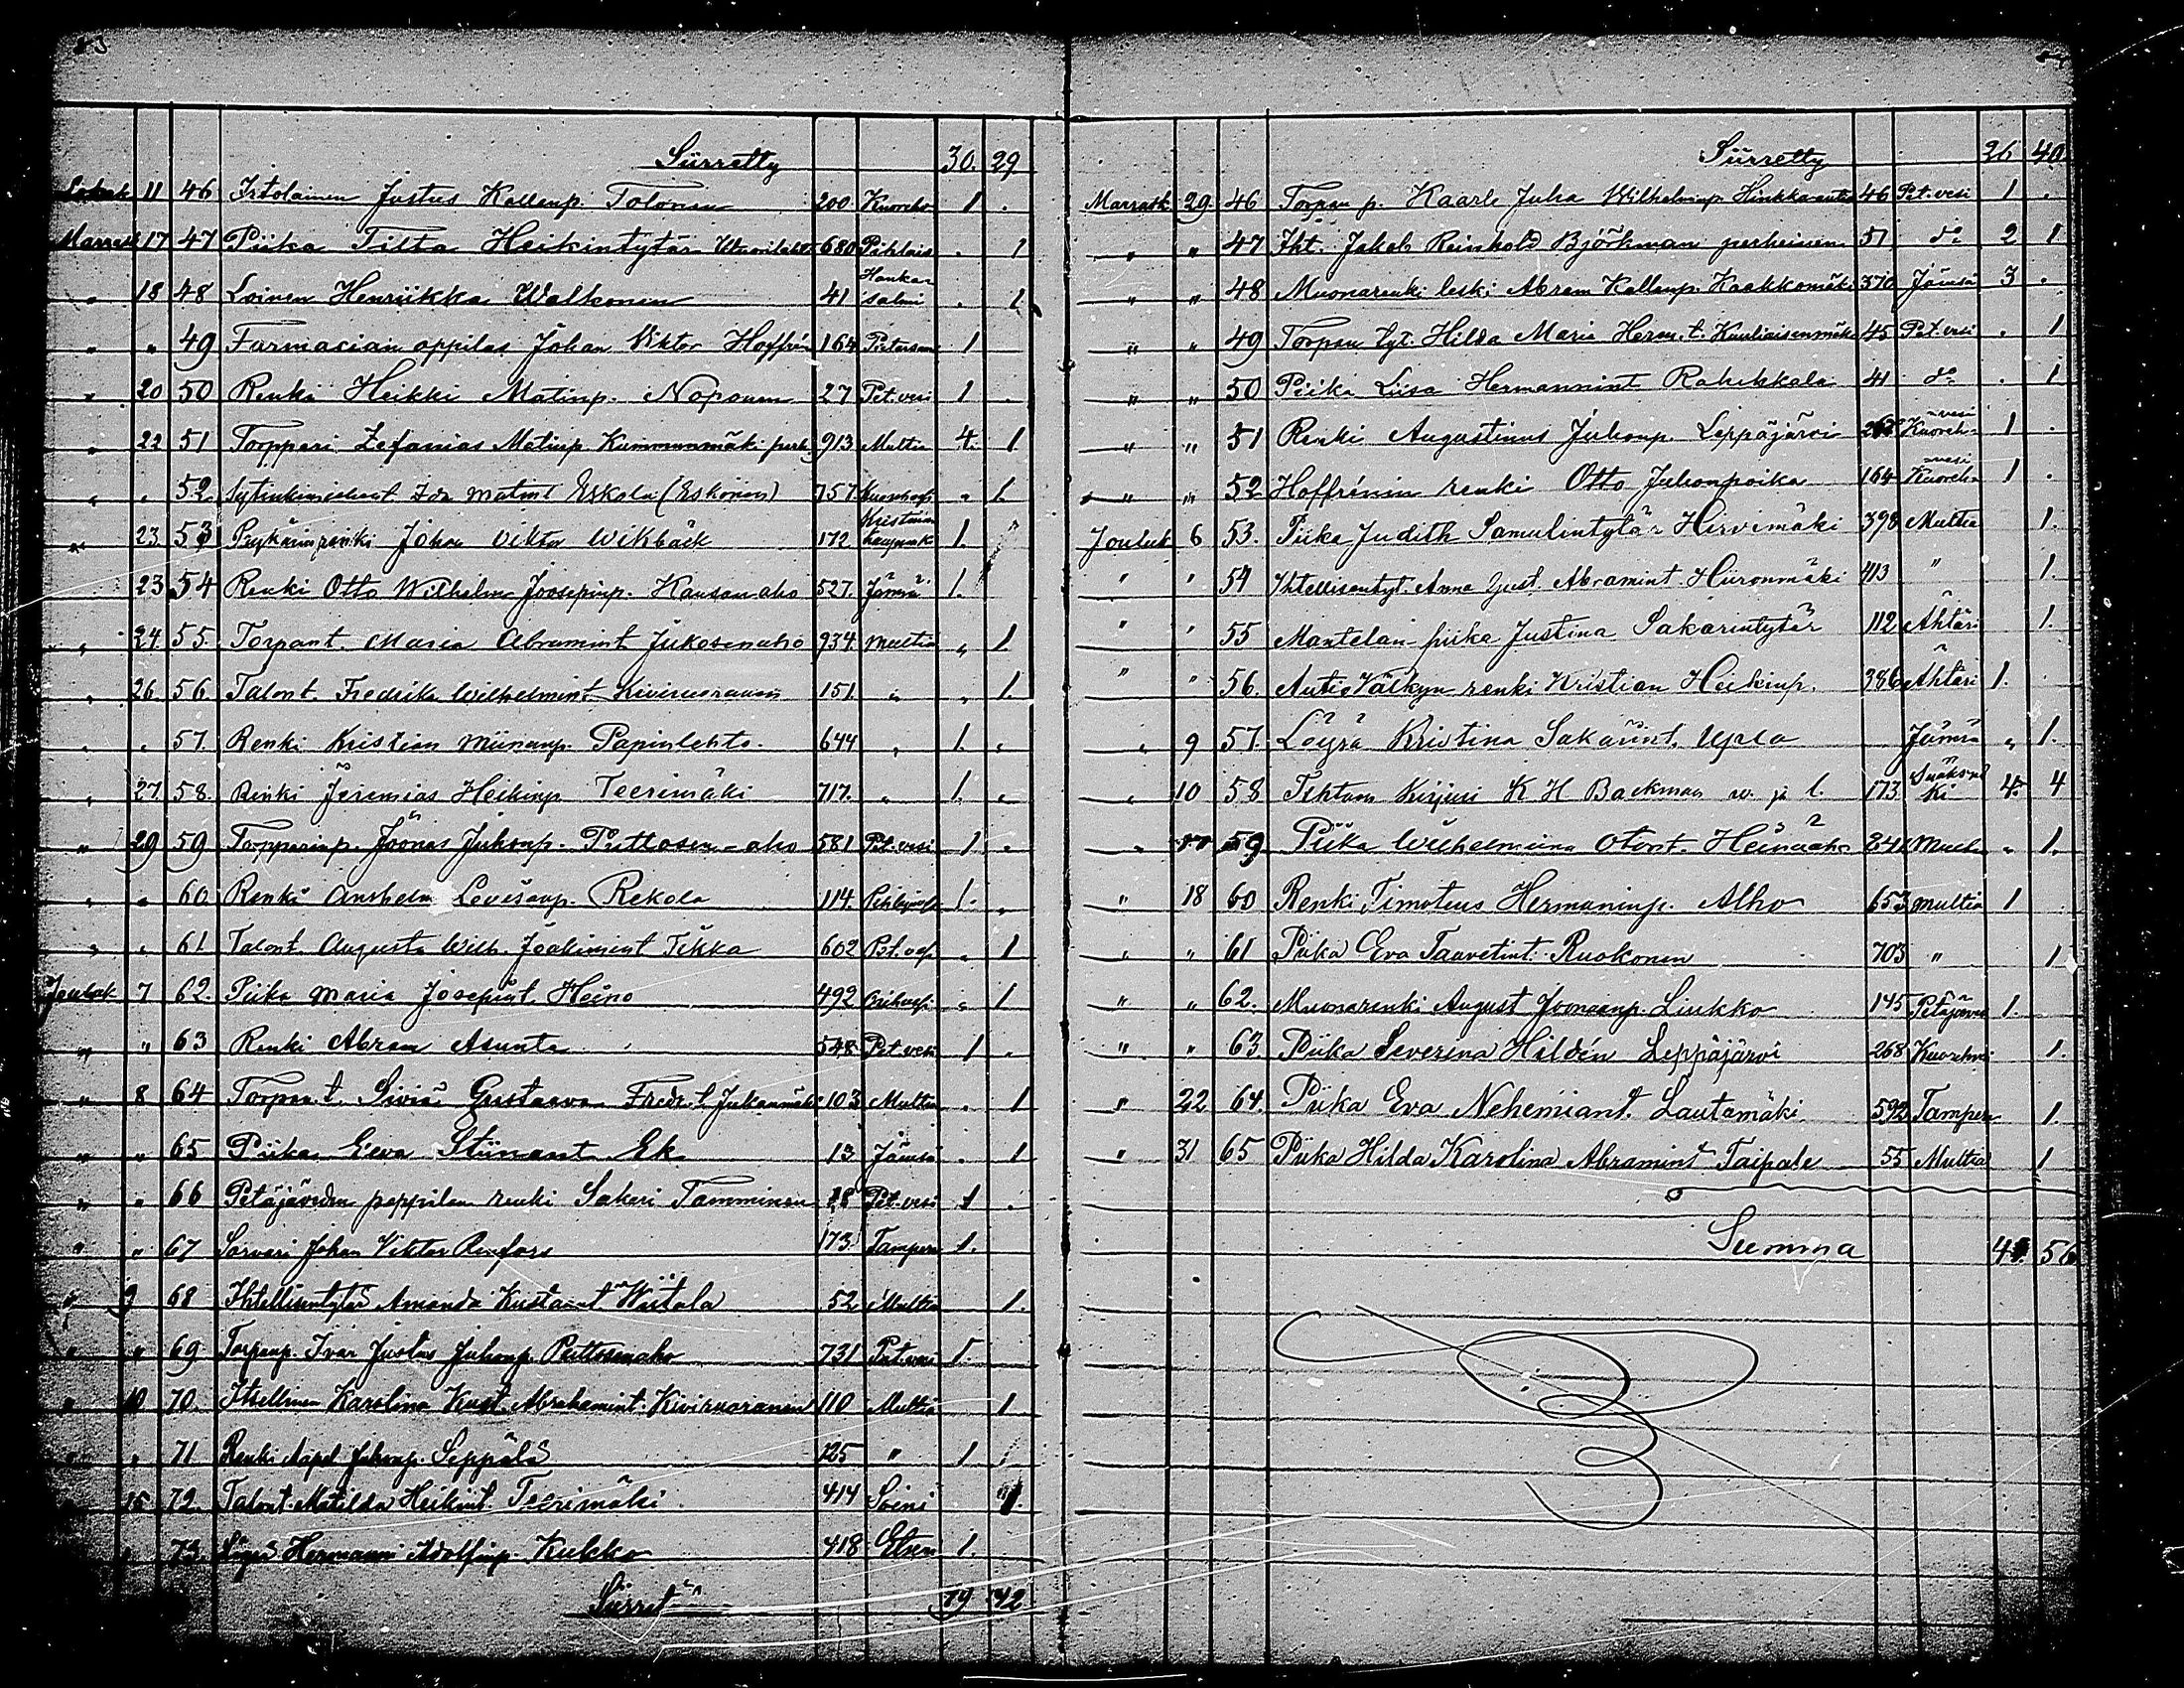 Siirretty 30. 29
Lokak 11 46 Irtolainen Justus Kallenp. Tolonen 200 Kuoreh 1 .
Marrask 17 47 Piika Tilta Heikintytär 680 Pihlais . 1
" 18 48 Loinen Henriikka Walkonen 41 Hankasalmi . 1
" " 49 Farmasian oppilas Johan Viktor Hoffrén 164 1
" 20 50 Renki Heikki Matinp. Noponen 27 Pet.vesi 1 .
" 22 51 Torppari Zefanias Matinp. Kummunmäki perh. 913 Multia 4. 1
" " 52. Ida Matint Eskola (Eskonen) 757 " 1.
" 23. 53 Johan Viktor Wikbäck 172 Kristiinan kaupunki 1. "
23 54 Renki Otto Wilhelm Joosepinp. Hansanaho 527. Jämsä 1.
" 24. 55. Torpant. Maria Abramint Jukosenaho 934. Multia " 1
" 26. 56. Talont. Fredrika Wilhelmint Kiviruoranen 151. " " 1.
" " 57. Renki Kristian Miinanp. Papinlehto. 644 " 1. "
" 27. 58. Renki Jeremias Heikinp. Teerimäki 717. " 1. "
" 29 59 Torpparinp. Joonas Juhonp. Puttosen-aho 581 Pet.vesi 1 .
" " 60 Renki Anshelm Leveisanp. Rekola 114. 1. "
" " 61 Talont. Augusta Wilh. Joakimint Tikka 602 Pet.ves. " 1
Jouluk 7 62. Piika Maria Josepint. Heino 492 " 1
" " 63 Renki Abram Asunta 548 Pet.vesi 1 .
" 8 64 Torpan t. Siviä Gustaava Fredr.t. Jukanmäki 103 Multia . 1
" " 65 Piika Eeva Stiinant Ek 13 Jämsä . 1
" " 66 Petäjäveden pappilan renki Sakari Tamminen 28 Pet.vesi 1 .
" " 67 Sorvari Johan Viktor Renfors 173 Tampere 1.
" 9 68 Ihtellisentytär Amanda Kustaant Wiitala 52 Multia 1.
" " 69 Torpanp. Ivar Justus Juhonp. Puttosenaho 731 Pet.vesi 1.
" 10 70. Itsellinen Karolina Kust. Abrahamint. Kiviruoranen 110 Multia 1
" " 71 Renki Aapel Juhonp. Seppälä 125 " 1
" 15 72. Talont. Matilda Heikint. Teerimäki 414 Soini 1
" 73. Hermanni Adolfinp. Kukko 418 Etseri 1.
Siirret 42
Siirretty 26 40
Marrask 29. 46 Torpan p. Kaarle Juha Wilhelminp. Hinkka-autio 46 Pet.vesi 1 .
" " 47 Iht. Jakob Reinhold Björkman perheineen 51 do 2 1
" " 48 Muonarenki leski Abram Kallenp. Kaakkomäki 370 Jämsä 3 .
" " 49 Torpan tyt. Hilda Maria Herm.t. Kuuliaisenmäki 45 Pet.vesi . 1
" " 50 Piika Liisa Hermannint Rahikkala 41 do . 1
" " 51 Renki Augustinus Juhonp. Leppäjärvi 268 Kuorehvesi 1 .
" " 52 Hoffrénin renki Otto Juhonpoika 164 Kuorehvesi 1 .
Jouluk 6 53. Piika Judith Samulintytär Hirvimäki 398 Multia 1.
" " 54 Ihtellisentyt. Anna Just. Abramint. Hiironmäki 413 " 1.
" " 55 Mantelan piika Justina Sakarintytär 112 Ähtäri 1.
" " 56. Autio Välkyn renki Kristian Heikinp. 386 Ähtäri 1.
" 9 57. Löysä Kristina Sakarint. Ujula Jämsä " 1.
" 10 58 Tehtaan kirjuri K H Backman w. ja l. 173 4. 4
" 17 59 Piika Wilhelmiina Otont. Heinäaho 841 Multia " 1.
" 18 60 Renki Timoteus Hermaninp. Alho 653 Multia 1
" " 61 Piika Eva Taavetint. Ruokonen 703 " 1
" " 62. Muonarenki August Joonanp. Liukko 145 Petäjäves 1.
" " 63. Piika Severina Hildén Leppäjärvi 268 Kuorehvesi 1.
" 22 64. Piika Eva Nehemiant. Lautamäki 592 Tampere 1.
" 31 65 Piika Hilda Karolina Abramint Taipale 55 Multia 1
Summa 56